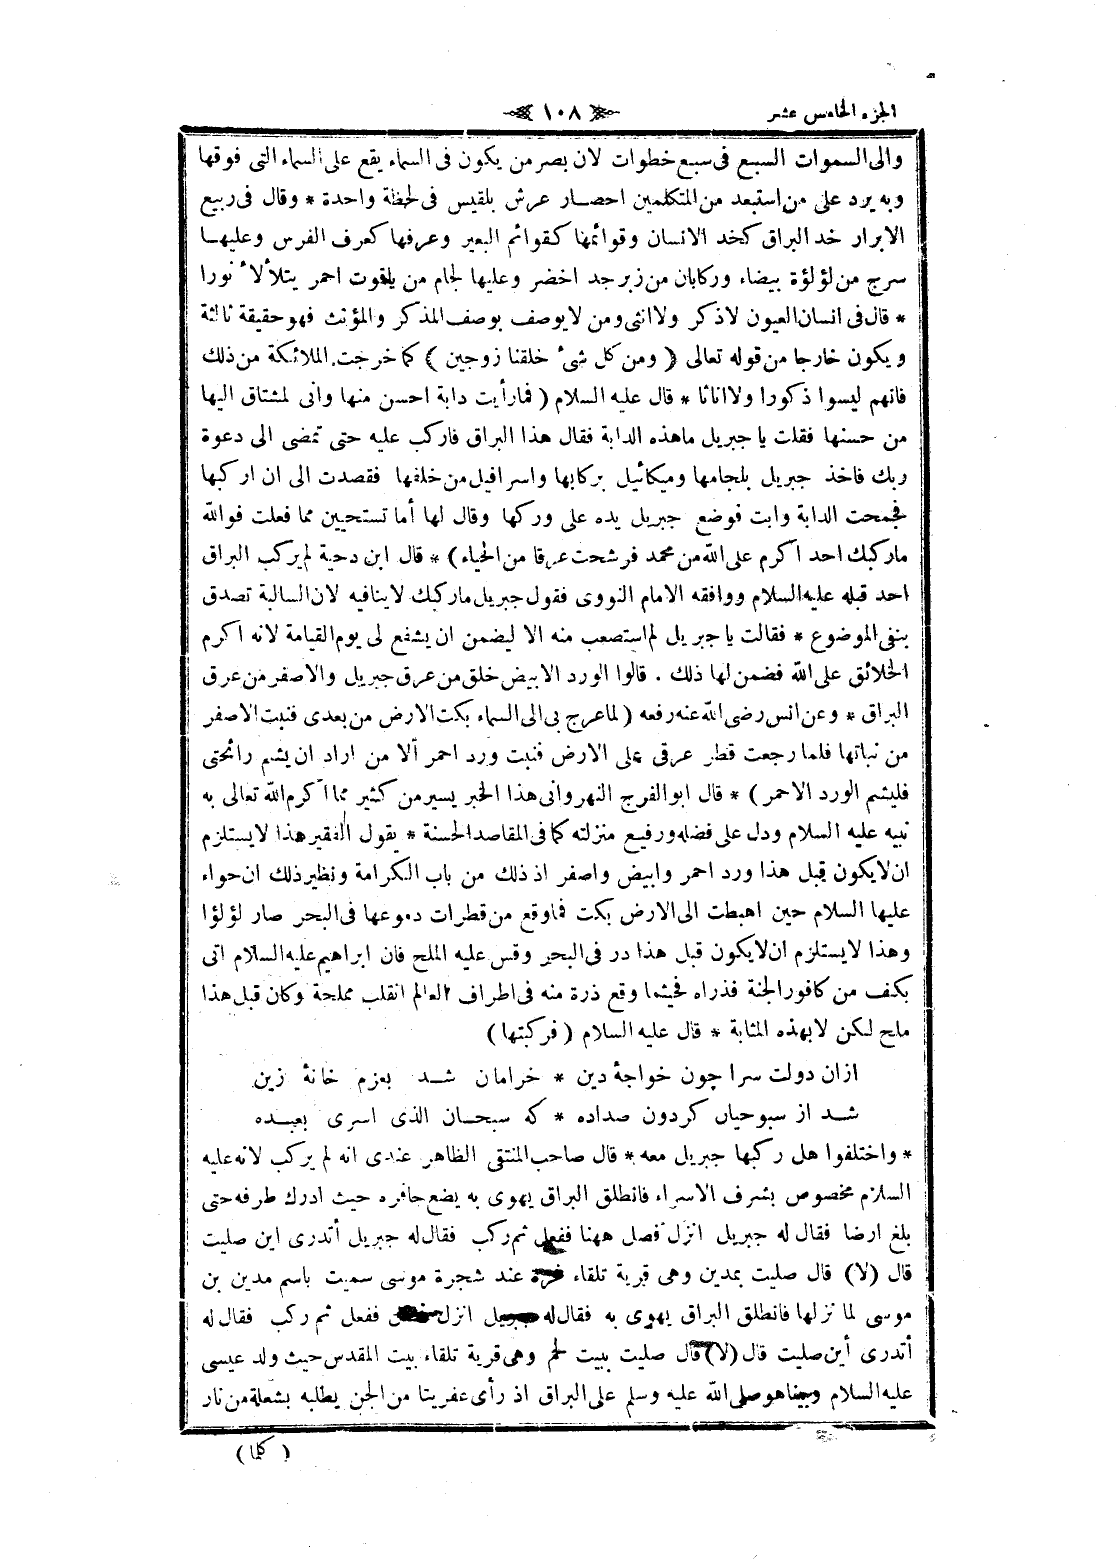 الجزء الخامس عشر ١٠٨
والى السموات السبع فى سبع خطوات لان بصر من يكون فى السماء يقع على السماء التى فوقها
وبه يرد على من استبعد من المتكلمين احضار عرش بلقيس فى لحظة واحدة * وقال فى ربيع
الابرار خد البراق كخد الانسان وقوائمها كقوائم البعير وعرفها كعرف الفرس وعليها
سرج من لؤلؤة بيضاء وركابان من زبرجد اخضر وعليها لجام من ياقوت احمر يتلألأ نورا
* قال فى انسان العيون لاذكر ولاانثى ومن لايوصف بوصف المذكر والمؤنث فهو حقيقة ثالثة
ويكون خارجا من قوله تعالى ( ومن كل شئ خلقنا زوجين ) كما خرجت الملائكة من ذلك
فانهم ليسوا ذكورا ولااناثا * قال عليه السلام ( فمارأيت دابة احسن منها وانى لمشتاق اليها
من حسنها فقلت ياجبريل ماهذه الدابة فقال هذا البراق فاركب عليه حتى تمضى الى دعوة
ربك فاخذ جبريل بلجامها وميكائيل بركابها واسرافيل من خلفها فقصدت الى ان اركبها
فجمحت الدابة وابت فوضع جبريل يده على وركها وقال لها أما تستحيين مما فعلت فوالله
ماركبك احد اكرم على الله من محمد فرشحت عرقا من الحياء ) * قال ابن دحية لم يركب البراق
احد قبله عليه السلام ووافقه الامام النووى فقول جبريل ماركبك لاينافيه لان السالبة تصدق
بنفى الموضوع * فقالت ياجبريل لم استصعب منه الا ليضمن ان يشفع لى يوم القيامة لانه اكرم
الخلائق على الله فضمن لها ذلك . قالوا الورد الابيض خلق من عرق جبريل والاصفر من عرق
البراق * وعن انس رضى الله عنه رفعه ( لما عرج بى الى السماء بكت الارض من بعدى فنبت الاصفر
من نباتها فلما رجعت قطر عرقى على الارض فنبت ورد احمر ألا من اراد ان يشم رائحتى
فليشم الورد الاحمر ) * قال ابوالفرج النهروانى هذا الخبر يسير من كثير مما اكرم الله تعالى به
نبيه عليه السلام ودل على فضله ورفيع منزلته كما فى المقاصد الحسنة * يقول الفقير هذا لايستلزم
ان لايكون قبل هذا ورد احمر وابيض واصفر اذ ذلك من باب الكرامة ونظير ذلك ان حواء
عليها السلام حين اهبطت الى الارض بكت فماوقع من قطرات دموعها فى البحر صار لؤلؤا
وهذا لايستلزم ان لايكون قبل هذا در فى البحر وقس عليه الملح فان ابراهيم عليه السلام اتى
بكف من كافور الجنة فذراه فحيثما وقع ذرة منه فى اطراف العالم انقلب مملحة وكان قبل هذا
ملح لكن لابهذه المثابة * قال عليه السلام ( فركبتها )
ازان دولت سرا چون خواجۀ دين * خرامان شد بعزم خانۀ زين
شد از سبوحيان كردون صداده * كه سبحان الذى اسرى بعبده
* واختلفوا هل ركبها جبريل معه * قال صاحب المنتقى الظاهر عندى انه لم يركب لانه عليه
السلام مخصوص بشرف الاسراء فانطلق البراق يهوى به يضع حافره حيث ادرك طرفه حتى
بلغ ارضا فقال له جبريل انزل فصل ههنا ففعل ثم ركب فقال له جبريل أتدرى اين صليت
قال ( لا ) قال صليت بمدين وهى قرية تلقاء غزة عند شجرة موسى سميت باسم مدين بن
موسى لما نزلها فانطلق البراق يهوى به فقال له جبريل انزل ففعل ثم ركب فقال له
أتدرى أين صليت قال ( لا ) قال صليت بيت لحم وهى قرية تلقاء بيت المقدس حيث ولد عيسى
عليه السلام وبيناهو صلى الله عليه وسلم على البراق اذ رأى عفريتا من الجن يطلبه بشعلة من نار
( كلما )